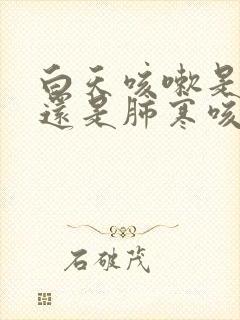 白天咳嗽是
還是肺寒咳
石破茂